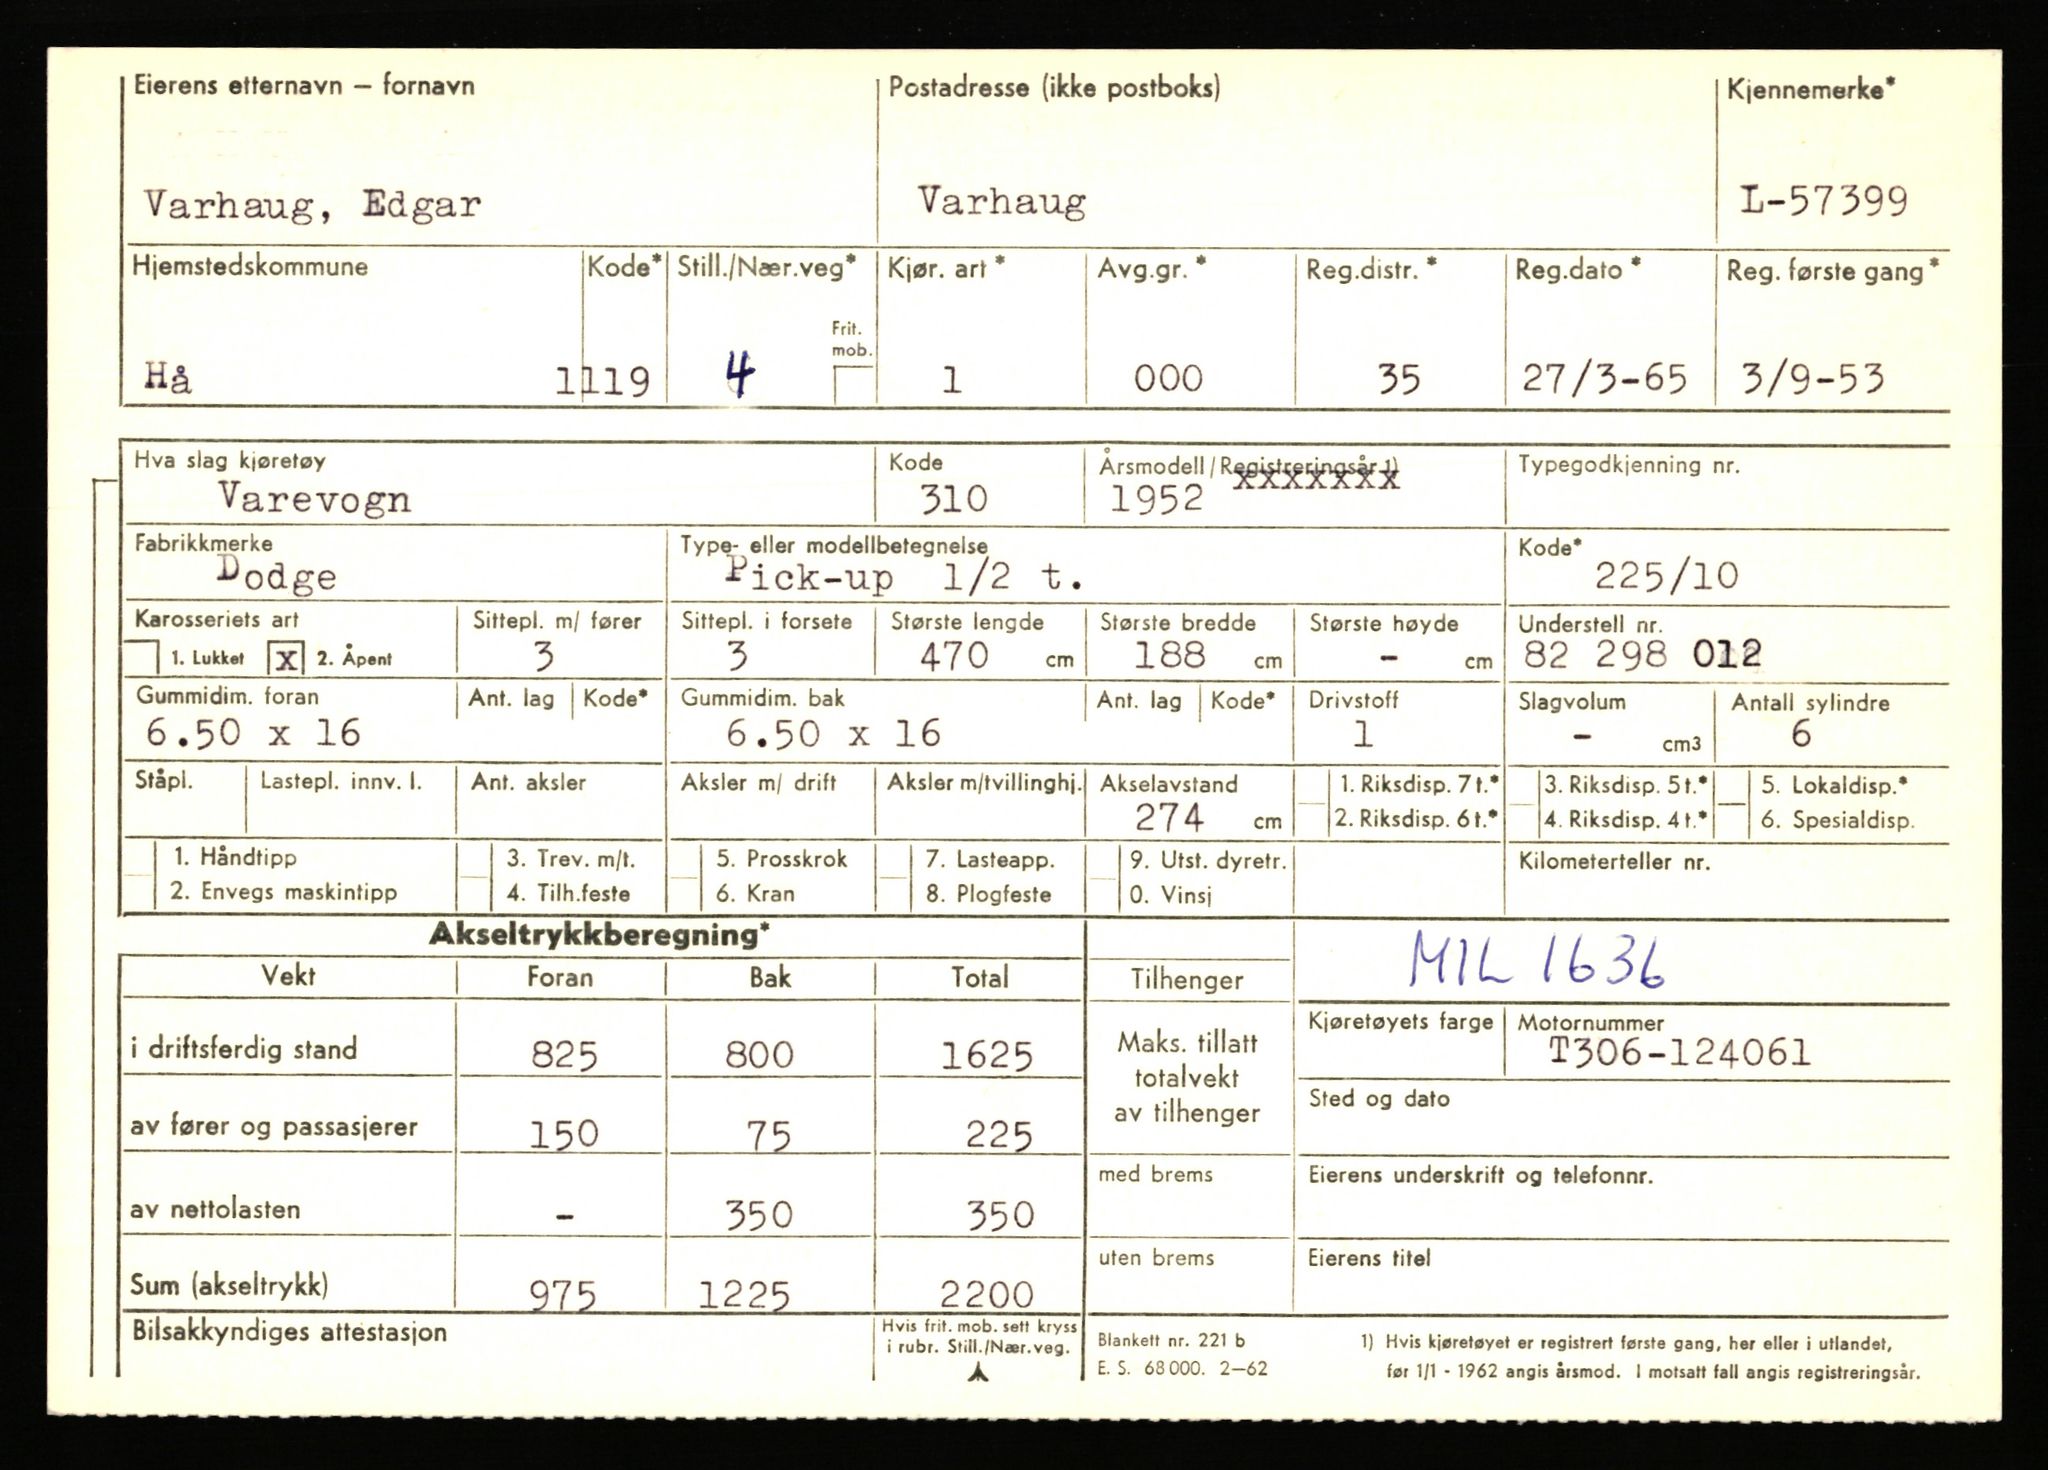 Eierens etternavn – fornavn Postadresse (ikke postboks) Kjennemerke*
Varhaug, Edgar Varhaug L-57399
Hjemstedskommune Kode* Still./Nær.veg* Kjør. art* Avg.gr.* Reg.distr.* Reg.dato* Reg. første gang*
Frit.
mob.
Hå 1119 4 1 000 35 27/3-65 3/9-53
Hva slag kjøretøy Kode Årsmodell/Registreringsår 1) Typegodkjenning nr.
xxxxxxx
Varevogn 310 1952
Fabrikkmerke Type- eller modellbetegnelse Kode*
Dodge Pick-up 1/2 t. 225/10
Karosseriets art Sittepl. m/ fører Sittepl. i forsete Største lengde Største bredde Største høyde Understell nr.
1. Lukket x 2. Åpent 3 3 470 cm 188 cm - cm 82 298 012
Gummidim. foran Ant. lag Kode* Gummidim. bak Ant. lag Kode* Drivstoff Slagvolum Antall sylindre
6.50 x 16 6.50 x 16 1 - cm3 6
Ståpl. Lastepl. innv. l. Ant. aksler Aksler m/ drift Aksler m/tvillinghj. Akselavstand 1. Riksdisp. 7 t.* 3. Riksdisp. 5 t.* 5. Lokaldisp.*
274 cm 2. Riksdisp. 6 t.* 4. Riksdisp. 4 t.* 6. Spesialdisp.
1. Håndtipp 3. Trev. m/t. 5. Prosskrok 7. Lasteapp. 9. Utst. dyretr. Kilometerteller nr.
2. Envegs maskintipp 4. Tilh.feste 6. Kran 8. Plogfeste 0. Vinsj
Akseltrykkberegning*
MIL 1636
Vekt Foran Bak Total Tilhenger
Kjøretøyets farge Motornummer
i driftsferdig stand 825 800 1625 Maks. tillatt T306-124061
totalvekt
av tilhenger
Sted og dato
av fører og passasjerer 150 75 225
med brems Eierens underskrift og telefonnr.
av nettolasten - 350 350
uten brems Eierens titel
Sum (akseltrykk) 975 1225 2200
Bilsakkyndiges attestasjon Hvis frit. mob. sett kryss
i rubr. Still./Nær.veg.
Blankett nr. 221 b
E. S. 68 000. 2–62
1) Hvis kjøretøyet er registrert første gang, her eller i utlandet,
før 1/1 - 1962 angis årsmod. I motsatt fall angis registreringsår.